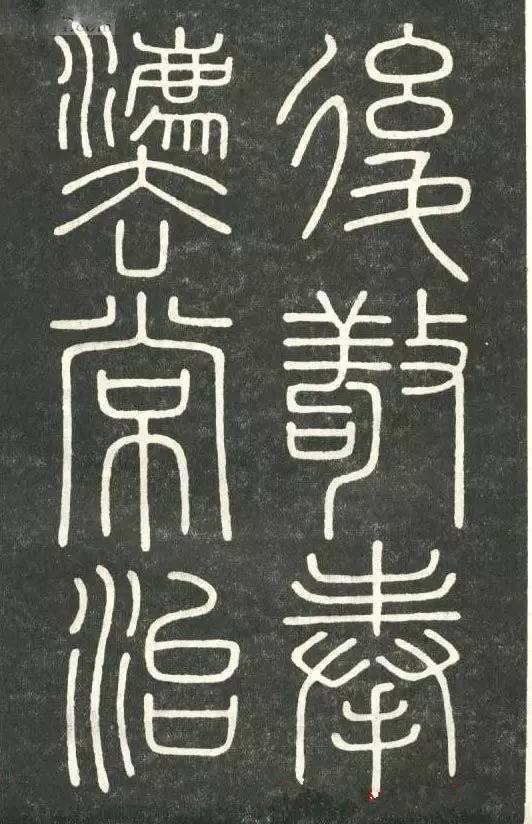 後敬奉
灋常治